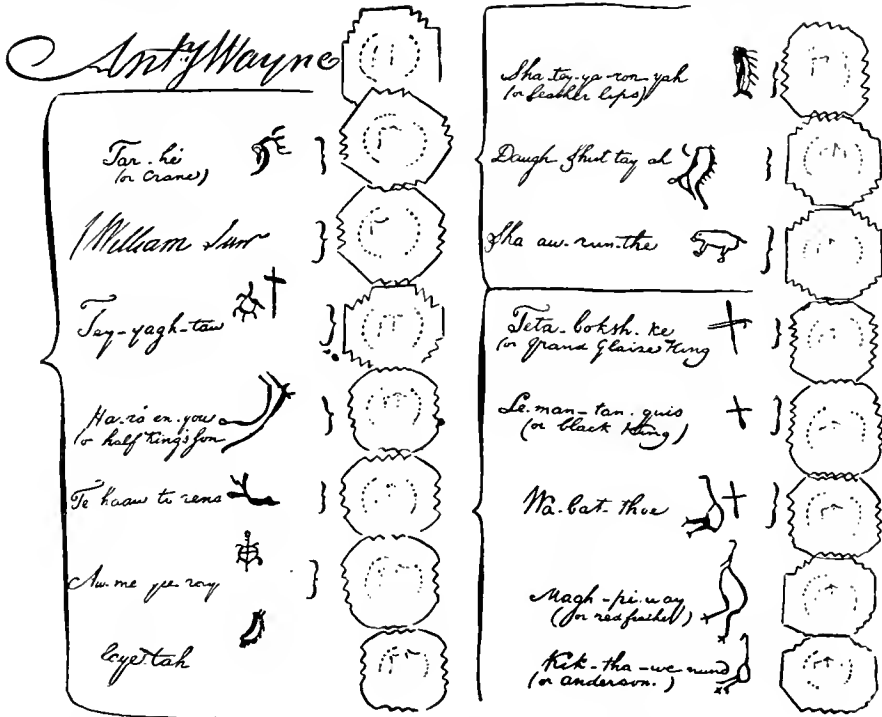 Anty Wayne
Tar-hé
(or Crane)
William Sur
Tey-yagh-taw
Ha-ró en-you
or half King's son
Te haaw to rens
Aw-me yee ray
Staye-tah
Sha-tey-ya-ron-yah
(or feather lips)
Daugh Shut tay ah
Sha aw-run-the
Teta-boksh-ke
(or Grand Glaize King
Le-man-tan-quis
(or black King)
Wa-bat-thoe
Magh-pi-way
(or red feather)
Kik-tha-we-nund
(or anderson.)